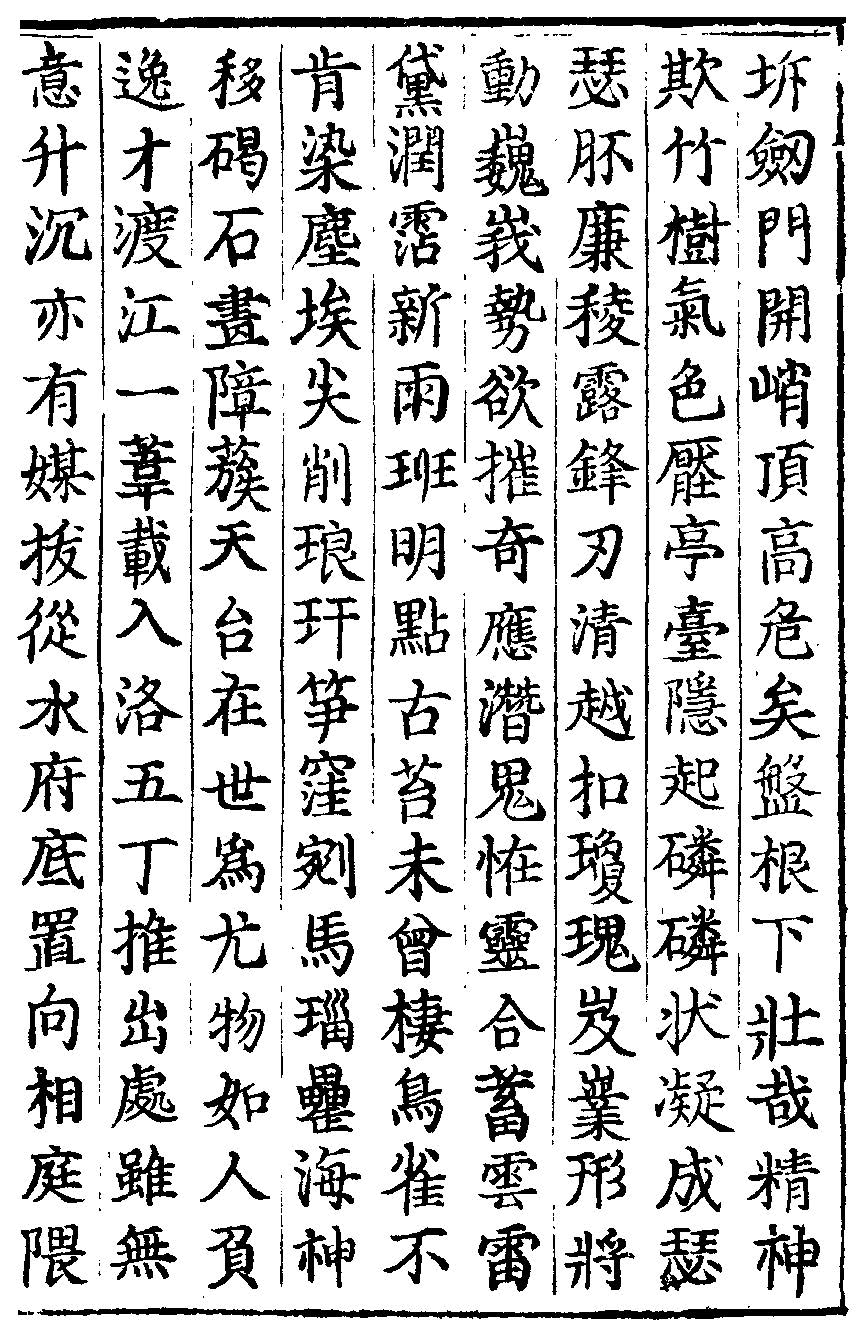 坼劒門開峭頂高危矣盤根下壯哉精神
欺竹樹氣色壓亭臺隱起磷磷狀凝成瑟
瑟胚廉稜露鋒刃清越扣瓊瑰岌嶪形將
動巍峩勢欲摧奇應潛鬼怪靈合蓄雲雷
黛潤霑新雨班明點古苔未曾棲鳥雀不
肯染塵埃尖削琅玕笋窪剜馬瑙罍海神
移碣石畫障蔟天台在世爲尤物如人負
逸才渡江一葦載入洛五丁推出處雖無
意升沉亦有媒拔從水府底置向相庭隈